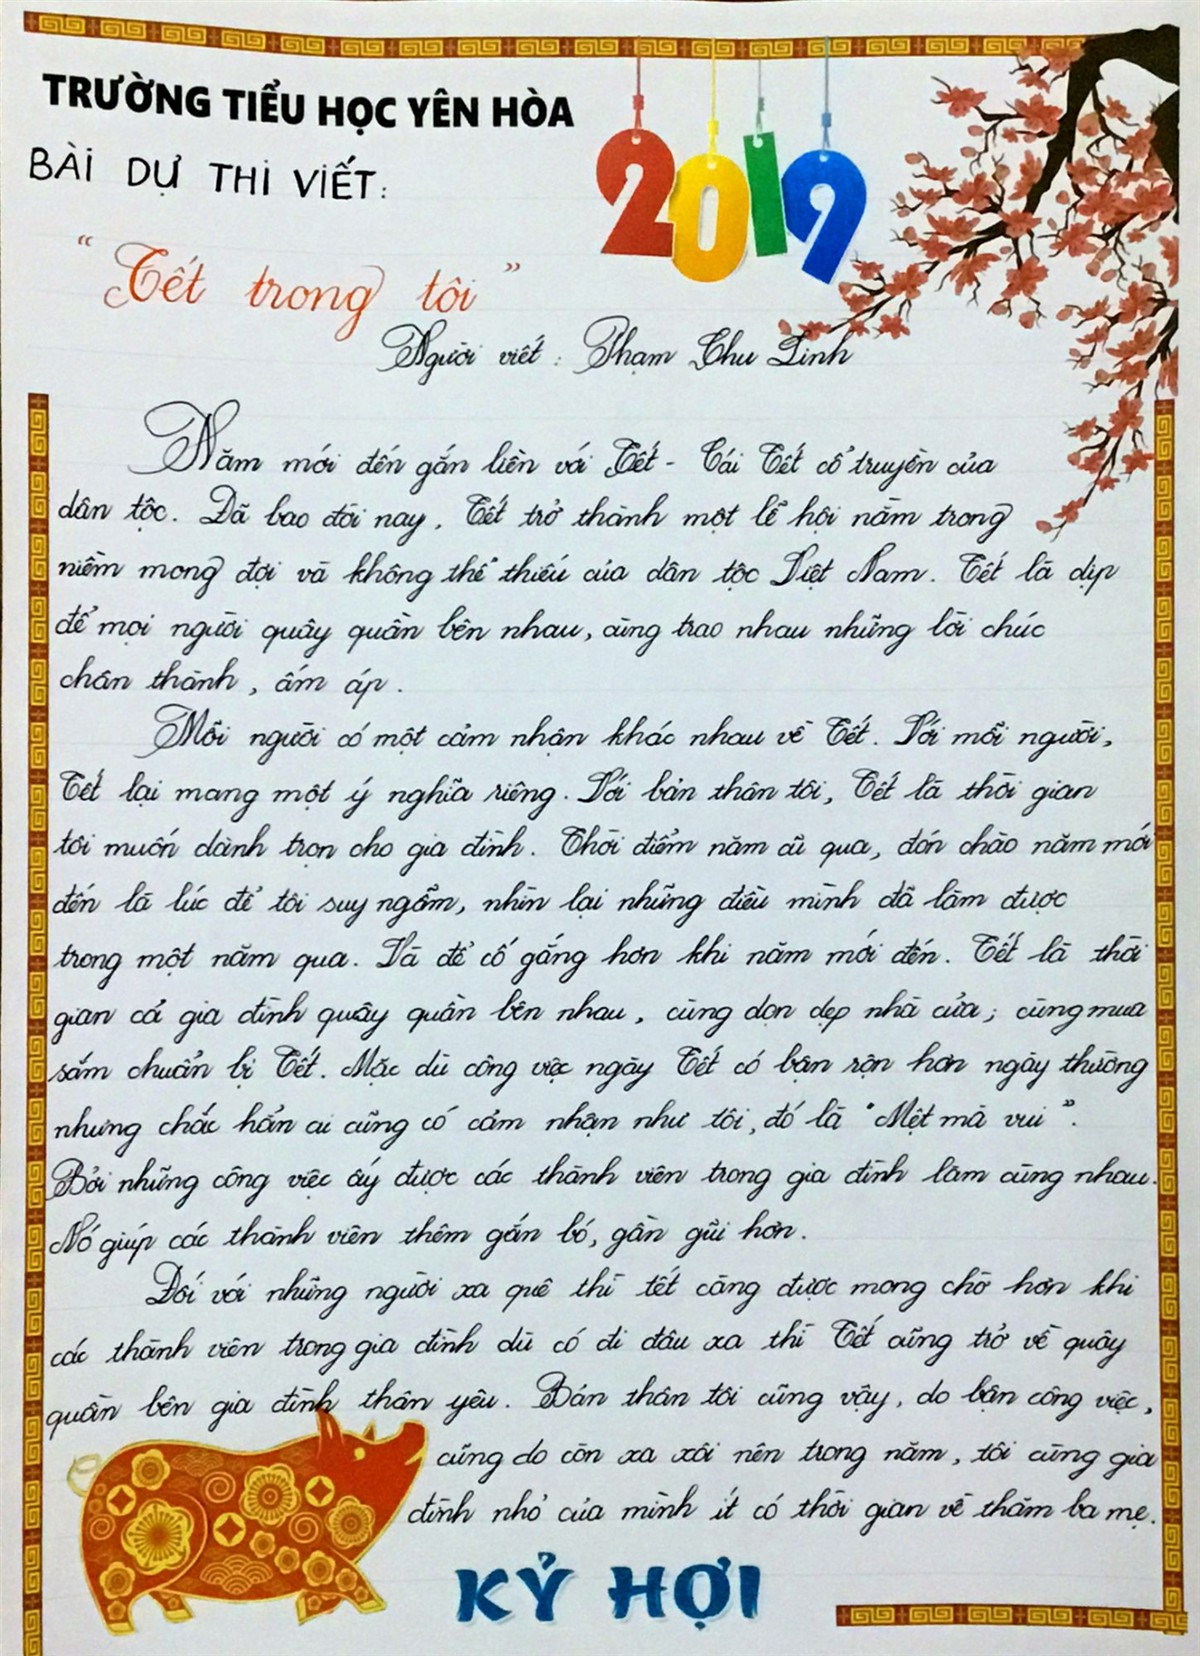 TRƯỜNG TIỂU HỌC YÊN HÒA
2019
BÀI DỰ THI VIẾT:
"Tết trong tôi"
Người viết: Phạm Thu Linh
Năm mới đến gắn liền với Tết - Cái Tết cổ truyền của
dân tộc. Đã bao đời nay, Tết trở thành một lễ hội nằm trong
niềm mong đợi và không thể thiếu của dân tộc Việt Nam. Tết là dịp
để mọi người quây quần bên nhau, cùng trao nhau những lời chúc
chân thành, ấm áp.
Mỗi người có một cảm nhận khác nhau về Tết. Với mỗi người,
Tết lại mang một ý nghĩa riêng. Với bản thân tôi, Tết là thời gian
tôi muốn dành trọn cho gia đình. Thời điểm năm cũ qua, đón chào năm mới
đến là lúc để tôi suy ngẫm, nhìn lại những điều mình đã làm được
trong một năm qua. Và để cố gắng hơn khi năm mới đến. Tết là thời
gian cả gia đình quây quần bên nhau, cùng dọn dẹp nhà cửa; cùng mua
sắm chuẩn bị Tết. Mặc dù công việc ngày Tết có bận rộn hơn ngày thường
nhưng chắc hẳn ai cũng có cảm nhận như tôi, đó là "Mệt mà vui".
Bởi những công việc ấy được các thành viên trong gia đình làm cùng nhau.
Nó giúp các thành viên thêm gắn bó, gần gũi hơn.
Đối với những người xa quê thì tết càng được mong chờ hơn khi
các thành viên trong gia đình dù có đi đâu xa thì Tết cũng trở về quây
quần bên gia đình thân yêu. Bản thân tôi cũng vậy, do bận công việc,
cũng do còn xa xôi nên trong năm, tôi cùng gia
đình nhỏ của mình ít có thời gian về thăm ba mẹ.
KỶ HỢI